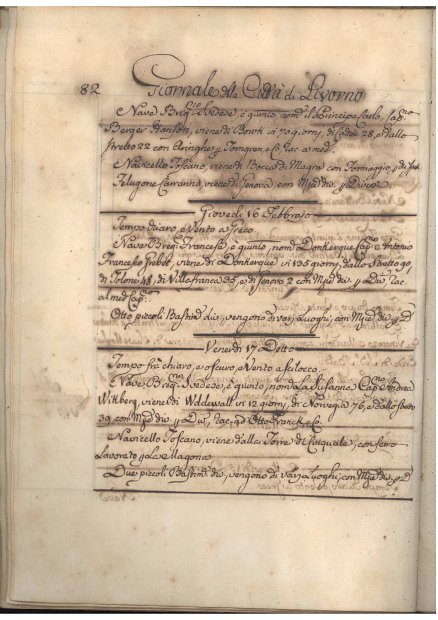 82 Giornale della Città di Livorno
Nave Brig.no Svedese, è giunto, nom.o il Principe Carlo, Cap.no
Berger Hansen, viene di in 70 giorni, di Cadice 28, e dallo
stretto 22 con Aringhe, e
Navicello Toscano, viene di Bocca di Magra con Formaggio, p. di
Felugone Carrarino, viene di Genova con Mer. div. p. Diversi
Giovedì 16 Febbrajo
Tempo chiaro, e Vento a Greco
Nave Brig.no Francese, è giunto, nom.o Donkerque Cap.no Antonio
Francesco viene di Donkerque in 135 giorni, dallo Stretto 90,
di Tolone 48, di Villafranca 35, e di Genova 2 con Mer. div. p. Div., rac.
al med.o Cap.no
Otto piccoli Bastim. div. vengono di varj Luoghi, con Mer. div. p. D.
Venerdì 17 Detto
Tempo frà chiaro, e oscuro, e Vento a Scilocco
Nave Brig.no Svedese, è giunto, nom.o La Susanne Cap.no Andrea
Witberg, viene di Uddewall in 12 giorni, di Norvegia 76, e dallo stretto
39, con Mer. div. p. Div., rac. ad Otto Franck, e C.
Navicello Toscano, viene dalla Torre di Cinquale, con ferro
Lavorato p. la Magona
Due piccoli Bastim. div., vengono di varj Luoghi, con Mer. div. p. D.
Nave